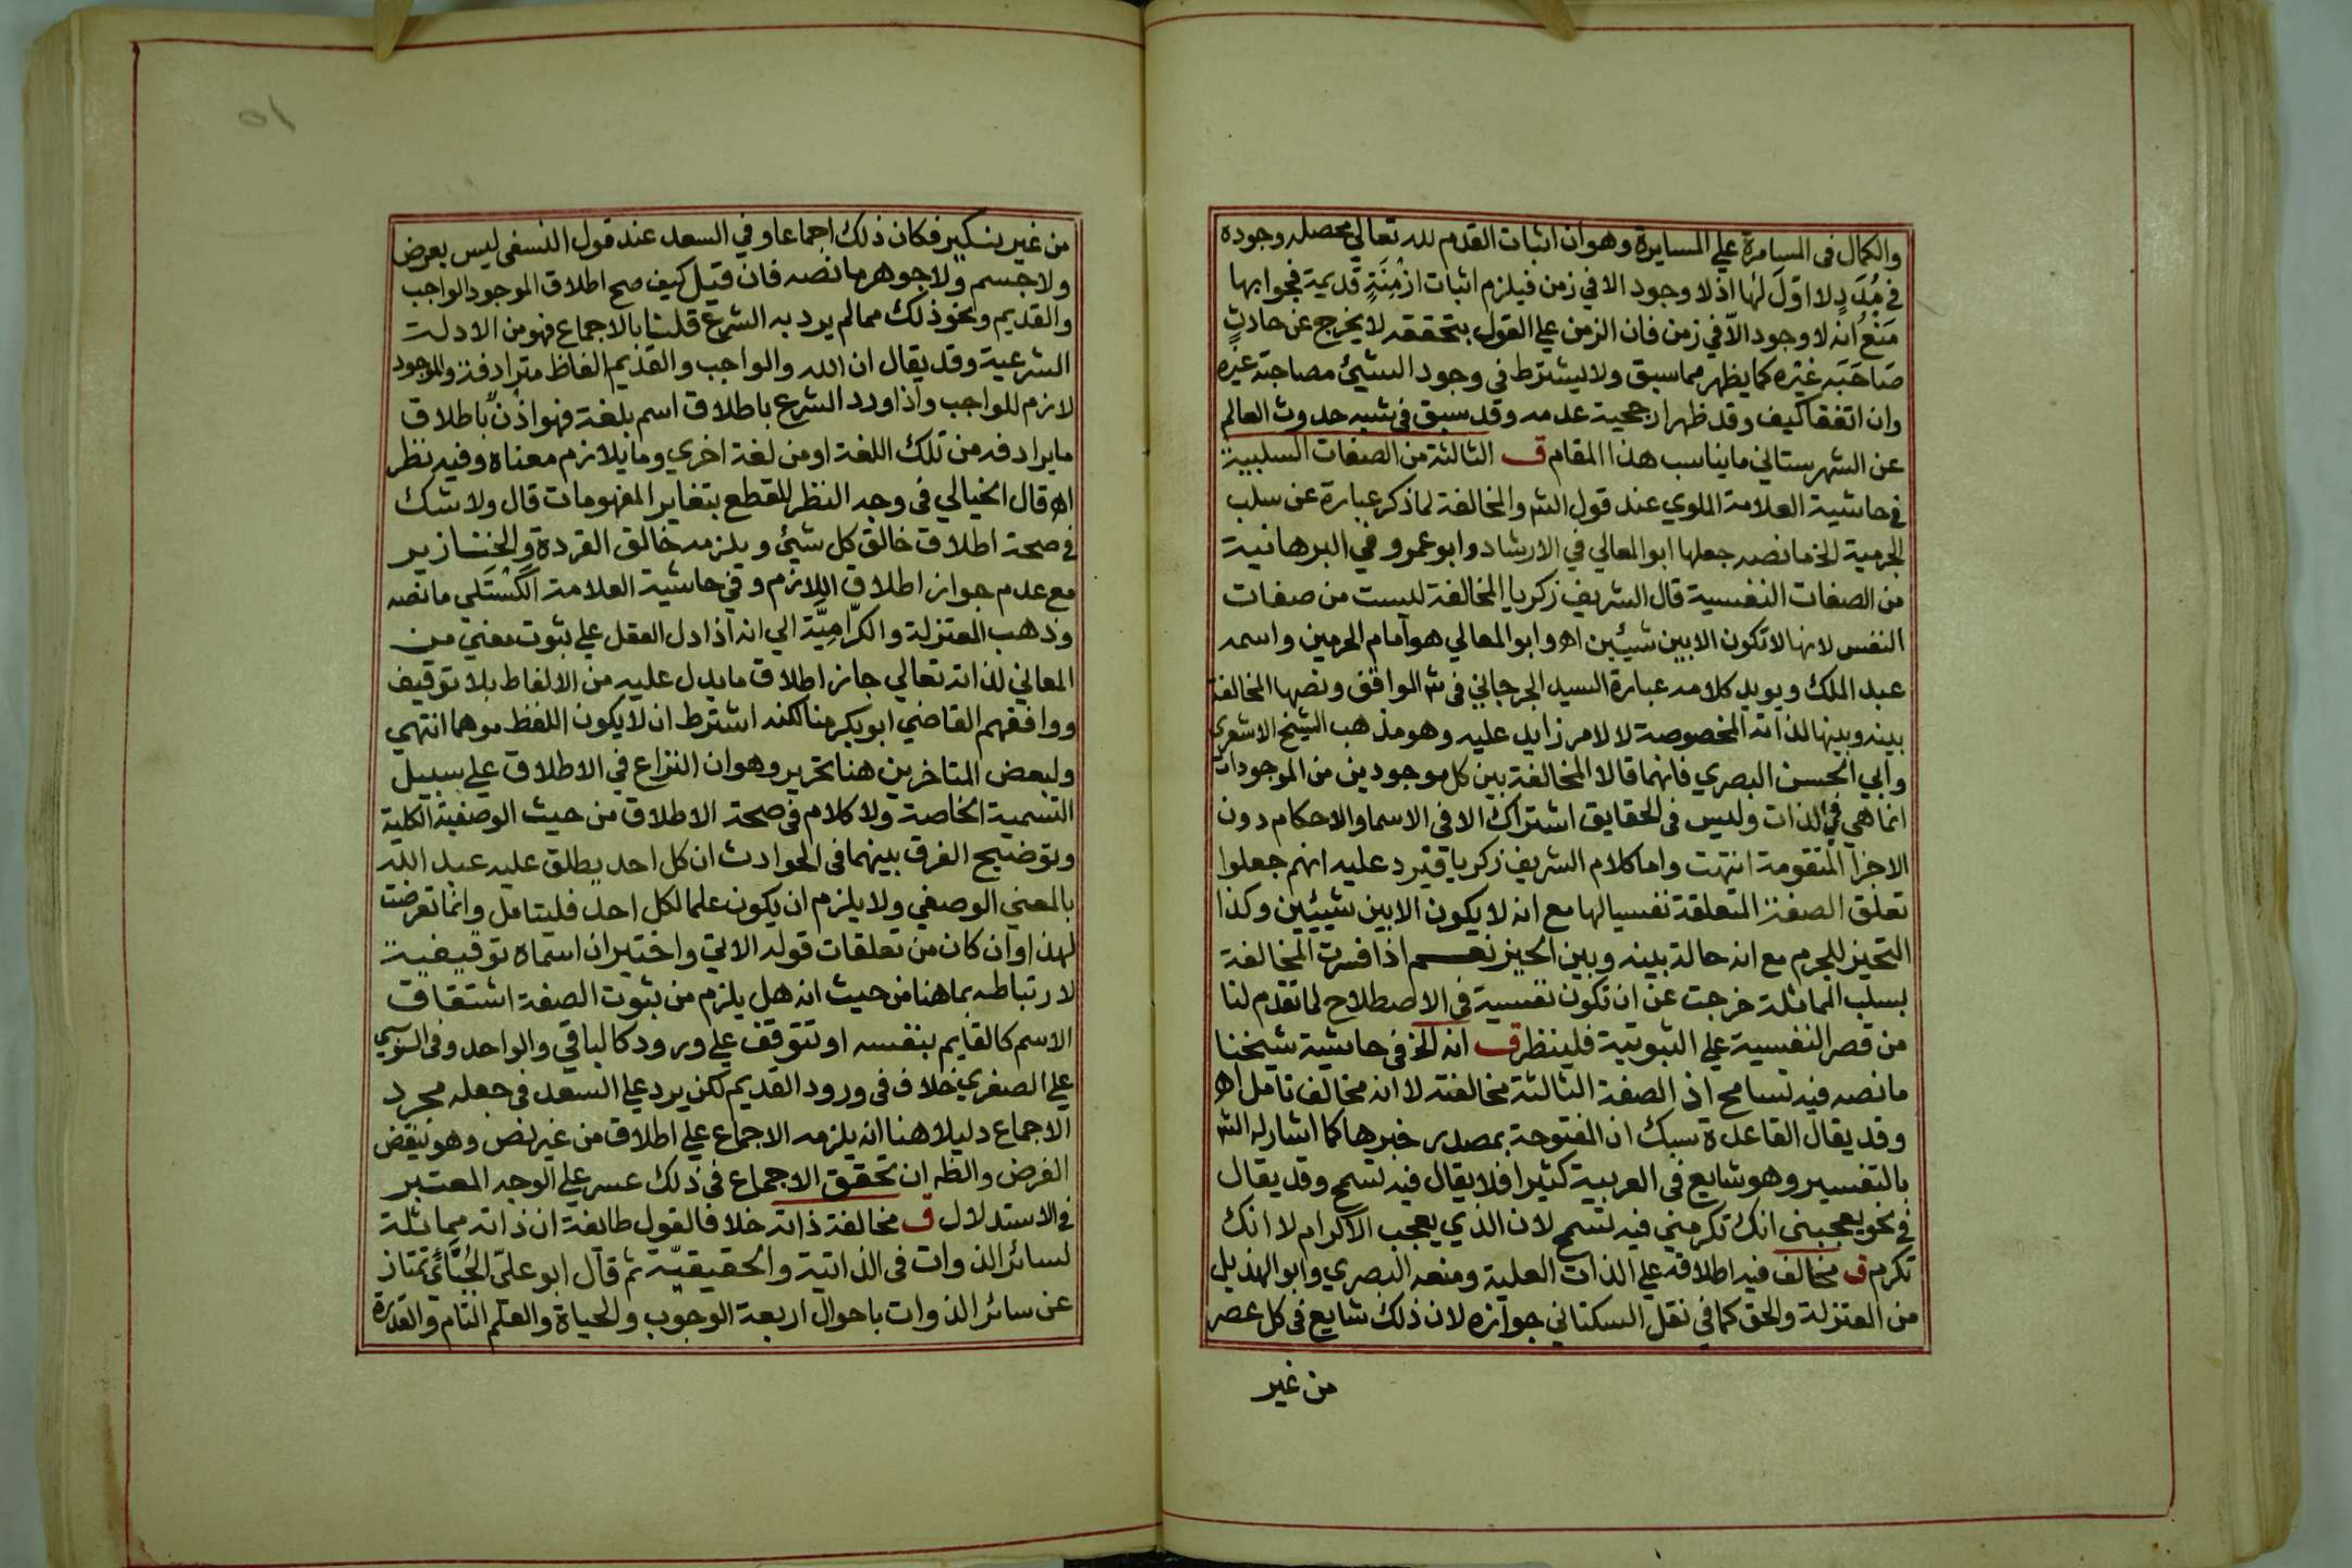 والكمال فى المسامرة علي المسايرة وهوان اثبات القدم لله تعالي محصله وجوده
في مُدَدٍ لا اوّلَ لَها اذ لا وجود الا في زمن فيلزم اثبات ازْمِنَةٍ قديمة فجوابها
مَنْعُ انه لا وجود الاّ في زمن فان الزمن علي القول بتحققه لا يخرج عن حادثٍ
صَاحَبَه غيْره كما يظهر مما سبق ولا يشترط في وجود الشيئ مصاحبة غيره
وان اتفقا كيف وقد ظهر ارجحية عدمه وقد سبق في شبه حدوث العالم
عن الشهرستاني ما يناسب هذا المقام ق الثالثة من الصفات السلبية
في حاشية العلامة الملوي عند قول الشـ والمخالفة لما ذكر عبارة عن سلب
الجرمية الخ ما نصه جعلها ابو المعالي في الارشاد وابو عمرو في البرهانية
من الصفات النفسية قال الشريف زكريا المخالفة ليست من صفات
النفس لانها لا تكون الا بين شيئين اه وابو المعالي هو امام الحرمين واسمه
عبد الملك ويويد كلامه عبارة السيد الجرجاني في شـ الواقف ونصها المخالفة
بينه وبينها لذاته المخصوصة لا لامر زايد عليه وهو مذهب الشيخ الاشعري
وابي الحسن البصري فانهما قالا المخالفة بين كل موجودين من الموجودات
انما هي في الذات وليس فى الحقايق اشتراك الا فى الاسما والاحكام دون
الاجزا المتقومة انتهت واما كلام الشريف زكريا فيرد عليه انهم جعلوا
تعلق الصفة المتعلقة نفسيا لها مع انه لا يكون الا بين شيئين وكذا
التحيز للجرم مع انه حالة بينه وبين الحيز نعم اذا فسرت المخالفة
بسلب المماثلة خرجت عن ان تكون نفسية في الاصطلاح لما تقدم لنا
من قصر النفسية علي الثبوتية فلينظر ق انه الخ فى حاشية شيخنا
ما نصه فيه تسامح اذ الصفة الثالثة مخالفته لا انه مخالف تامل اه
وقد يقال القاعدة سبك ان المفتوحة بمصدر خبرها كما اشار له الشـ
بالتفسير وهو شايع فى العربية كثيرا فلا يقال فيه تسمح وقد يقال
في نحو يعجبني انك تكرمني فيه تسمح لان الذي يعجب الاكرام لا انك
تكرم ق مخالف فيه اطلاقه علي الذات العلية ومنعه البصري وابو الهذيل
من المعتزلة والحق كما فى نقل السكتاني جوازه لان ذلك شايع فى كل عصر
من غير
من غير نكير فكان ذلك اجماعا وفي السعد عند قول النسفي ليس بعرض
ولا جسم ولا جوهر ما نصه فان قيل كيف صح اطلاق الموجود الواجب
والقديم ونحو ذلك مما لم يرد به الشرع قلنا بالاجماع فهو من الادلة
الشرعية وقد يقال ان الله والواجب والقديم الفاظ مترادفة والموجود
لازم للواجب واذا ورد الشرع باطلاق اسم بلغة فهو اذْنٌ باطلاق
ما يرادفه من تلك اللغة او من لغة اخري وما يلازم معناه وفيه نظر
اه قال الخيالي في وجه النظر للقطع بتغاير المفهومات قال ولا شك
في صحة اطلاق خالق كل شيئ ويلزمه خالق القردة والخنازير
مع عدم جواز اطلاق اللازم وفي حاشية العلامة الكَسْتَلي ما نصه
وذهب المعتزلة والكرّاميَّة الي انه اذا دل العقل علي ثبوت معني من
المعاني لذاته تعالي جاز اطلاق ما يدل عليه من الالفاظ بلا توقيف
ووافقهم القاضي ابو بكر منا لكنه اشترط ان لا يكون اللفظ موهما انتهي
ولبعض المتاخرين هنا تحرير وهو ان النزاع في الاطلاق علي سبيل
التسمية الخاصة ولا كلام فى صحة الاطلاق من حيث الوصفية الكلية
وتوضيح الفرق بينهما فى الحوادث ان كل احد يطلق عليه عبد الله
بالمعني الوصفي ولا يلزم ان يكون علما لكل احد فليتامل وانما تعرضت
لهذا وان كان من تعلقات قوله الاتي واختير ان اسماه توقيفية
لارتباطه بما هنا من حيث انه هل يلزم من ثبوت الصفة اشتقاق
الاسم كالقايم بنفسه او تتوقف علي ورود كالباقي والواحد وفى السنوسي
علي الصغري خلاف فى ورود القديم لكن يرد علي السعد فى جعله مجرد
الاجماع دليلا هنا انه يلزمه الاجماع علي اطلاق من غير نص وهو نقض
الفرض والظ ان تحقق الاجماع فى ذلك عسر علي الوجه المعتبر
في الاستدلال ق مخالفة ذاته خلافا لقول طائفة ان ذاته مماثلة
لسائر الذوات فى الذاتية والحقيقيّة ثم قال ابو عليّ الجُبَّائي تمتاز
عن سائر الذوات باحوال اربعة الوجوب والحياة والعلم التام والقدرة